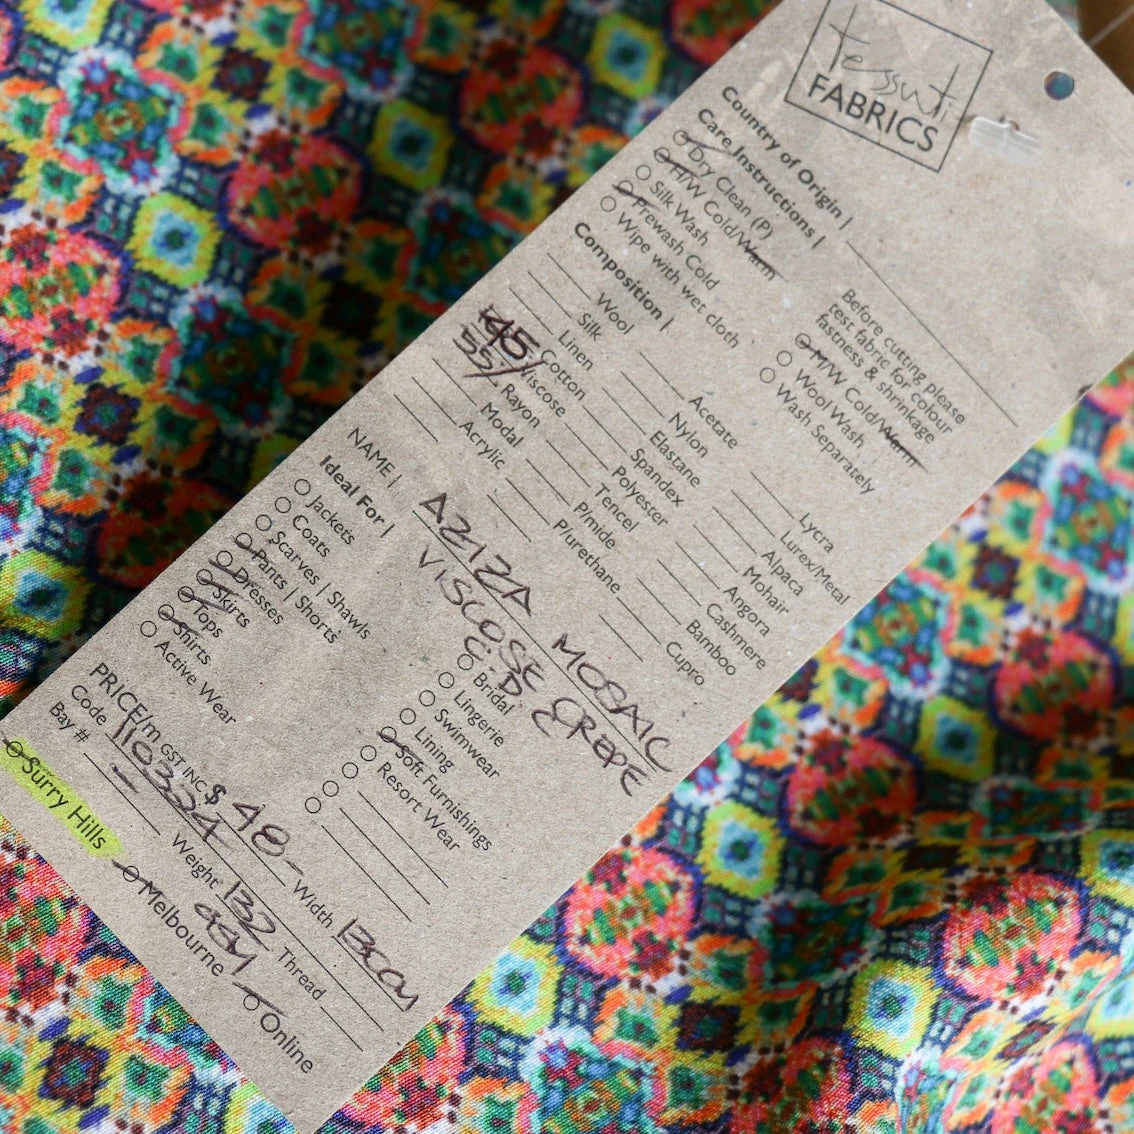 Tessuti
FABRICS
Country of Origin |
Care Instructions |
Dry Clean (P)
H/W Cold/Warm
Silk Wash
Prewash Cold
Wipe with wet cloth
Before cutting please
test fabric for colour
fastness & shrinkage
M/W Cold/Warm
Wool Wash
Wash Separately
Composition |
Wool
Silk
Linen
Cotton
45/ Viscose
55/ Rayon
Modal
Acrylic
Acetate
Nylon
Elastane
Spandex
Polyester
Tencel
P/mide
P/urethane
Lycra
Lurex/Metal
Alpaca
Mohair
Angora
Cashmere
Bamboo
Cupro
NAME | AZIZA MOSAIC
VISCOSE CREPE
C.D
Ideal For |
Jackets
Coats
Scarves | Shawls
Pants | Shorts
Dresses
Skirts
Tops
Shirts
Active Wear
Bridal
Lingerie
Swimwear
Lining
Soft Furnishings
Resort Wear
PRICE/m GST INC $ 48- Width 13CCM
Code 110324 Weight 132 GSM Thread
Bay # -
Surry Hills Melbourne Online